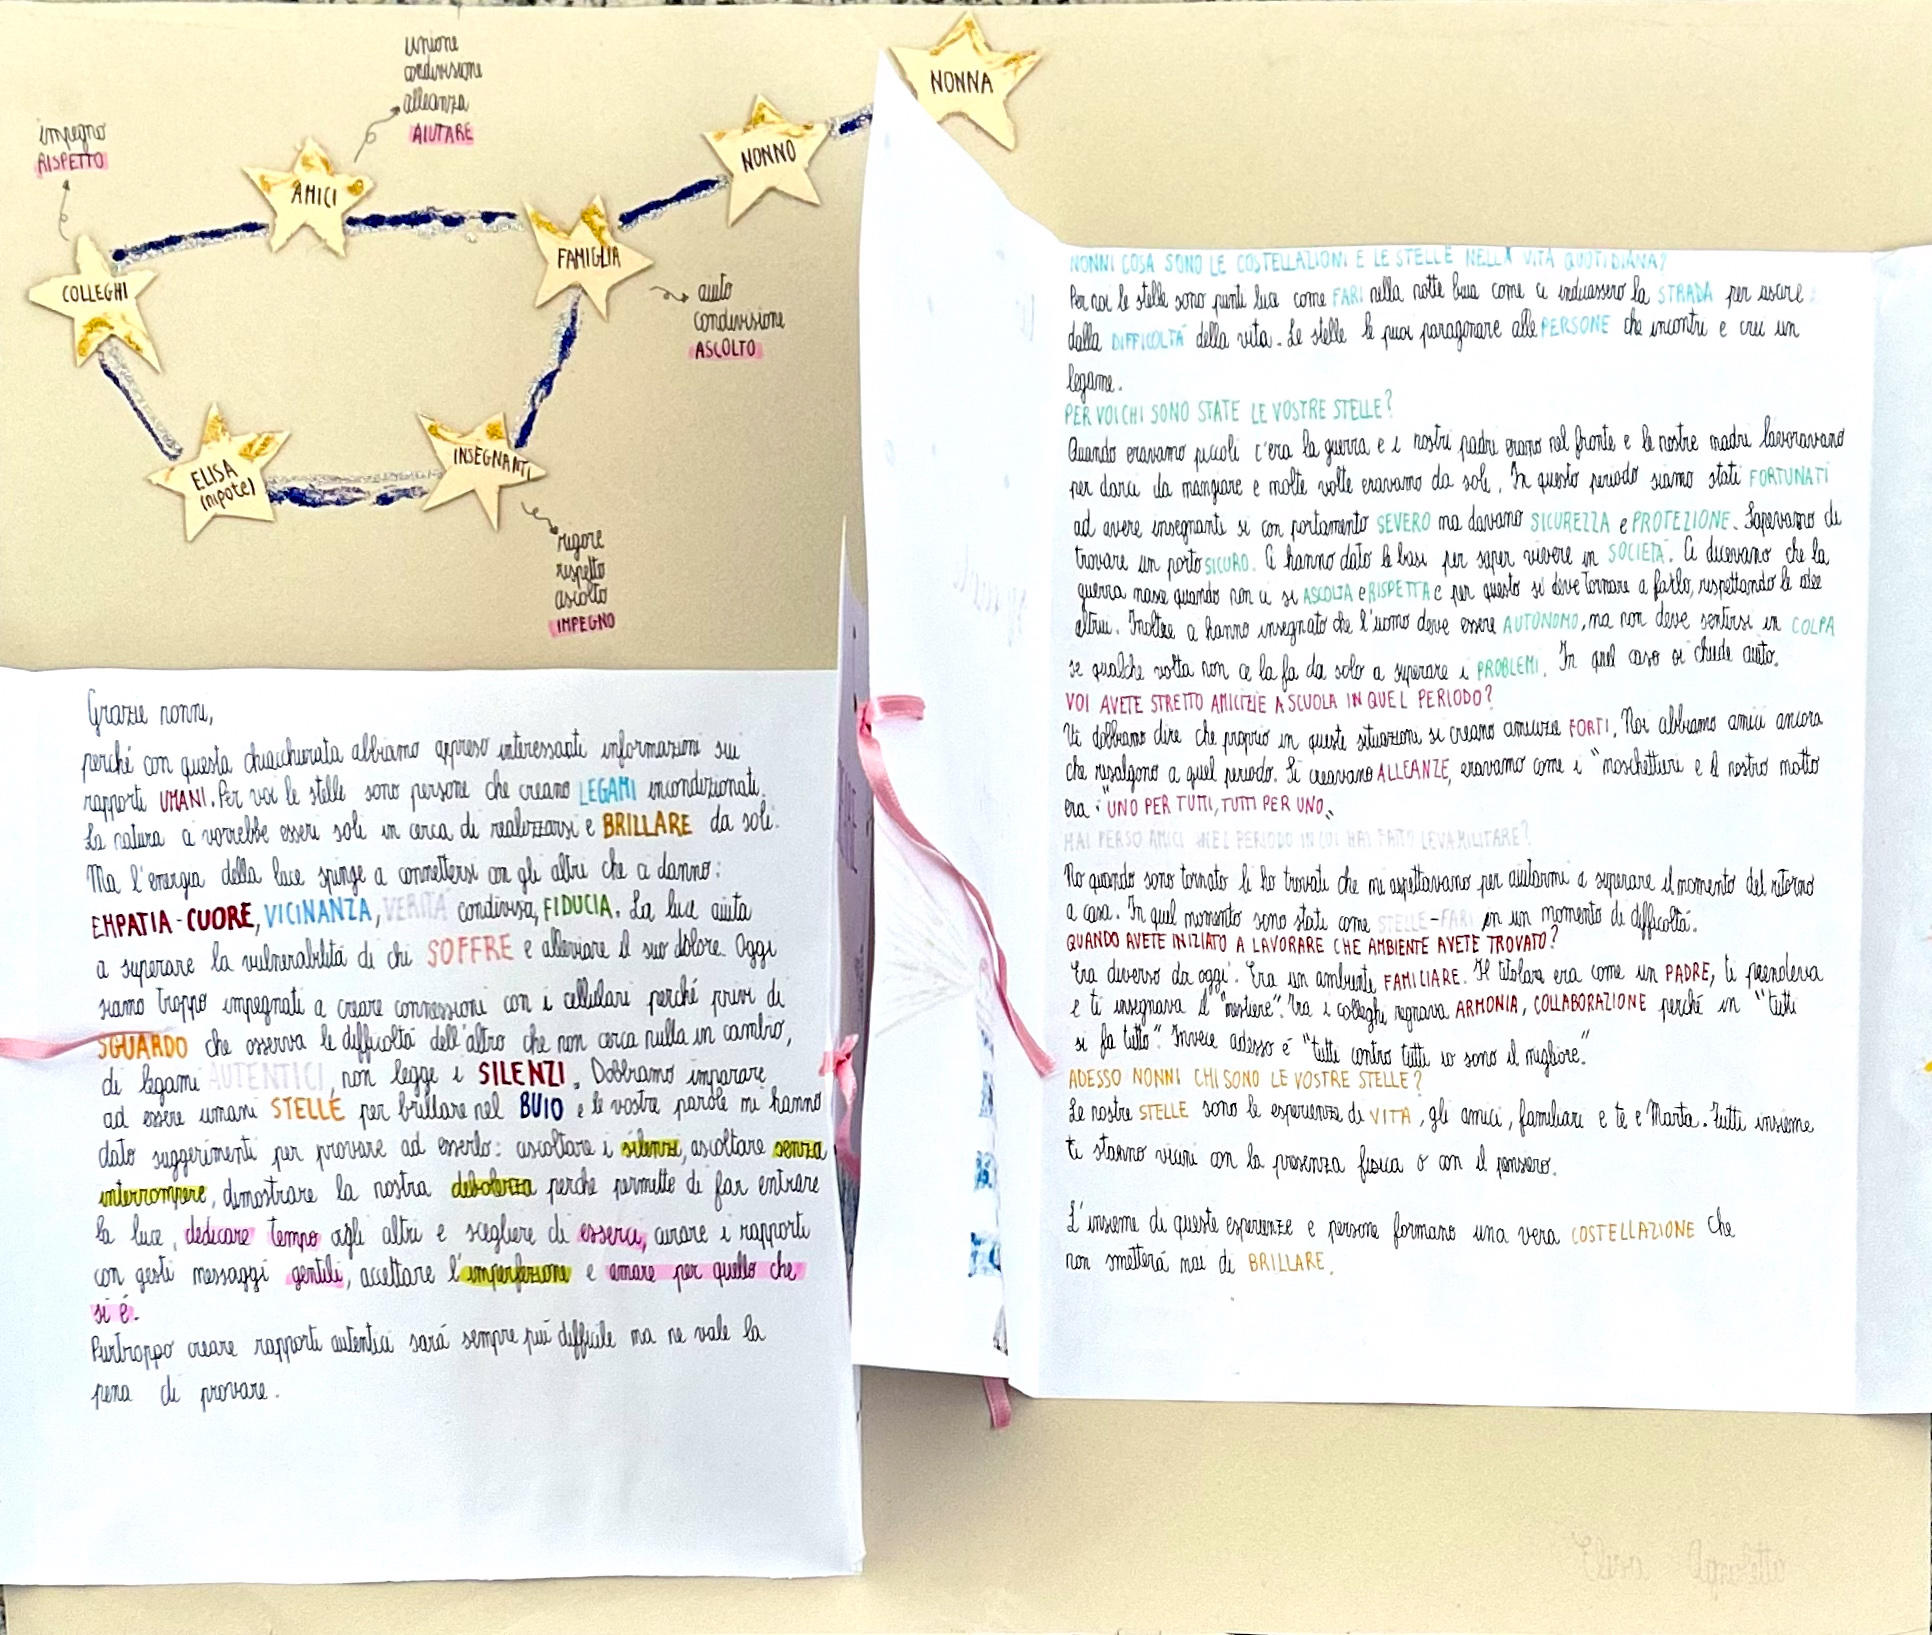 unione
condivisione
alleanza
AIUTARE
impegno
RISPETTO
NONNA
NONNO
AMICI
FAMIGLIA
COLLEGHI
aiuto
condivisione
ASCOLTO
ELISA
(nipote)
INSEGNANTI
rigore
rispetto
ascolto
IMPEGNO
Grazie nonni,
perché con questa chiacchierata abbiamo appreso interessanti informazioni sui
rapporti UMANI. Per voi le stelle sono persone che creano LEGAMI incondizionati.
La natura ci vorrebbe esseri soli in cerca di realizzarsi e BRILLARE da soli.
Ma l'energia della luce spinge a connettersi con gli altri che ci danno:
EMPATIA-CUORE, VICINANZA, VERITÀ condivisa, FIDUCIA. La luce aiuta
a superare la vulnerabilità di chi SOFFRE e alleviare il suo dolore. Oggi
siamo troppo impegnati a creare connessioni con i cellulari perché privi di
SGUARDO che osserva le difficoltà dell'altro che non cerca nulla in cambio,
di legami AUTENTICI, non legge i SILENZI. Dobbiamo imparare
ad essere umani STELLE per brillare nel BUIO e le vostre parole mi hanno
dato suggerimenti per provare ad esserlo: ascoltare i silenzi, ascoltare senza
interrompere, dimostrare la nostra debolezza perche permette di far entrare
la luce, dedicare tempo agli altri e scegliere di esserci, curare i rapporti
con gesti messaggi gentili, accettare l'imperfezione e amare per quello che
si é.
Purtroppo creare rapporti autentici sará sempre piú difficile ma ne vale la
pena di provare.
NONNI COSA SONO LE COSTELLAZIONI E LE STELLE NELLA VITA QUOTIDIANA?
Per noi le stelle sono punti luce come FARI nella notte buia come ci indicassero la STRADA per uscire
dalla DIFFICOLTÁ della vita. Le stelle le puoi paragonare alle PERSONE che incontri e crei un
legame.
PER VOI CHI SONO STATE LE VOSTRE STELLE?
Quando eravamo piccoli c'era la guerra e i nostri padri erano nel fronte e le nostre madri lavoravano
per darci da mangiare e molte volte eravamo da soli. In questo periodo siamo stati FORTUNATI
ad avere insegnanti si con portamento SEVERO ma davano SICUREZZA e PROTEZIONE. Sapevamo di
trovare un porto SICURO. Ci hanno dato le basi per saper vivere in SOCIETÁ. Ci dicevano che la
guerra nasce quando non ci si ASCOLTA e RISPETTA e per questo si deve tornare a farlo, rispettando le idee
altrui. Inoltre ci hanno insegnato che l'uomo deve essere AUTONOMO, ma non deve sentirsi in COLPA
se qualche volta non ce la fa da solo a superare i PROBLEMI. In quel caso si chiede aiuto.
VOI AVETE STRETTO AMICIZIE A SCUOLA IN QUEL PERIODO?
Ti dobbiamo dire che proprio in queste situazioni si creano amicizie FORTI. Noi abbiamo amici ancora
che risalgono a quel periodo. Si creavano ALLEANZE, eravamo come i "moschettieri e il nostro motto
era: "UNO PER TUTTI, TUTTI PER UNO"
HAI PERSO AMICI NEL PERIODO IN CUI HAI FATTO LEVA MILITARE?
No quando sono tornato li ho trovati che mi aspettavano per aiutarmi a superare il momento del ritorno
a casa. In quel momento sono stati come STELLE-FARI in un momento di difficoltá.
QUANDO AVETE INIZIATO A LAVORARE CHE AMBIENTE AVETE TROVATO?
Era diverso da oggi. Era un ambiente FAMILIARE. Il titolare era come un PADRE, ti prendeva
e ti insegnava il "mestiere". Tra i colleghi regnava ARMONIA, COLLABORAZIONE perché in "tutti
si fa tutto". Invece adesso é "tutti contro tutti io sono il migliore."
ADESSO NONNI CHI SONO LE VOSTRE STELLE?
Le nostre STELLE sono le esperienze di VITA, gli amici, familiari e te e Marta. Tutti insieme
ti stanno vicini con la presenza fisica o con il pensiero.
L'insieme di queste esperienze e persone formano una vera COSTELLAZIONE che
non smetterá mai di BRILLARE.